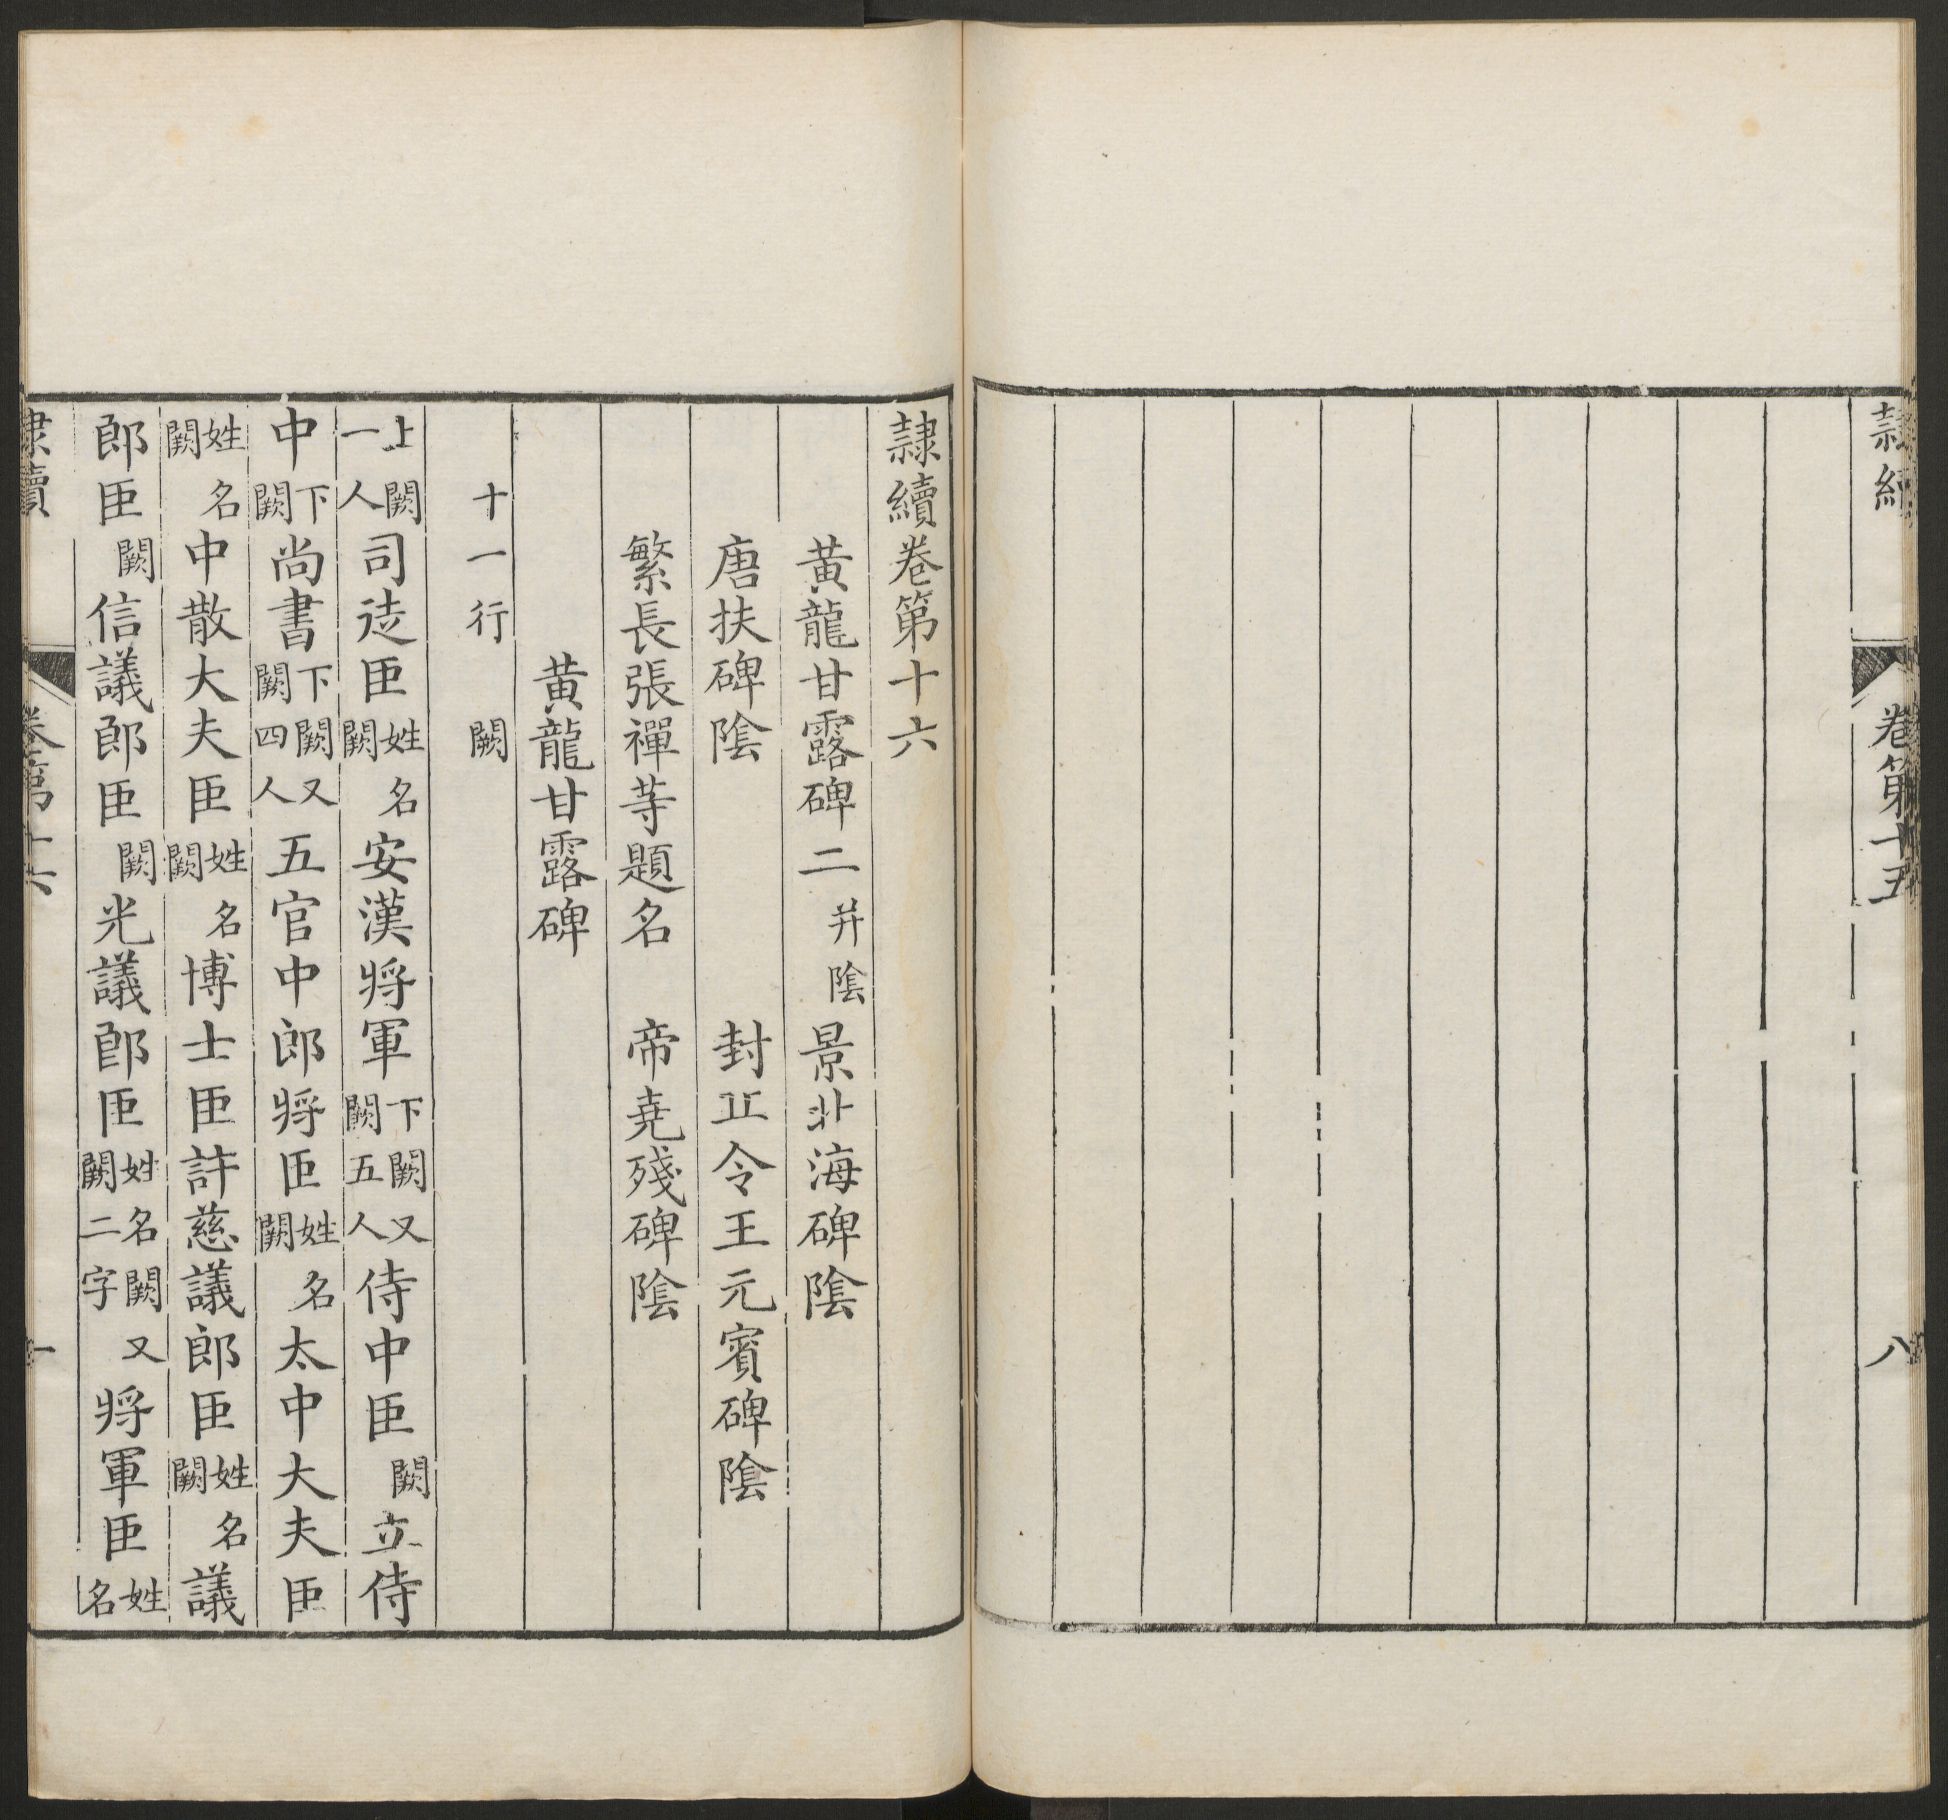 隸續
卷第十五
八
隷續卷第十六
黃龍甘露碑二并陰 景北海碑陰
唐扶碑陰 封丘令王元賓碑陰
繁長張禪䓁題名 帝堯殘碑陰
黃龍甘露碑
十一行闕
上闕一人司徒臣姓名闕安漢將軍下闕又闕五人侍中臣闕立侍
中下闕尚書下闕又闕四人五官中郎將臣姓名闕太中大夫臣
姓名闕中散大夫臣姓名闕博士臣許慈議郎臣姓名闕議
郎臣闕信議郎臣闕光議郎臣姓名闕又闕二字將軍臣姓名
隸續
卷第十六
一